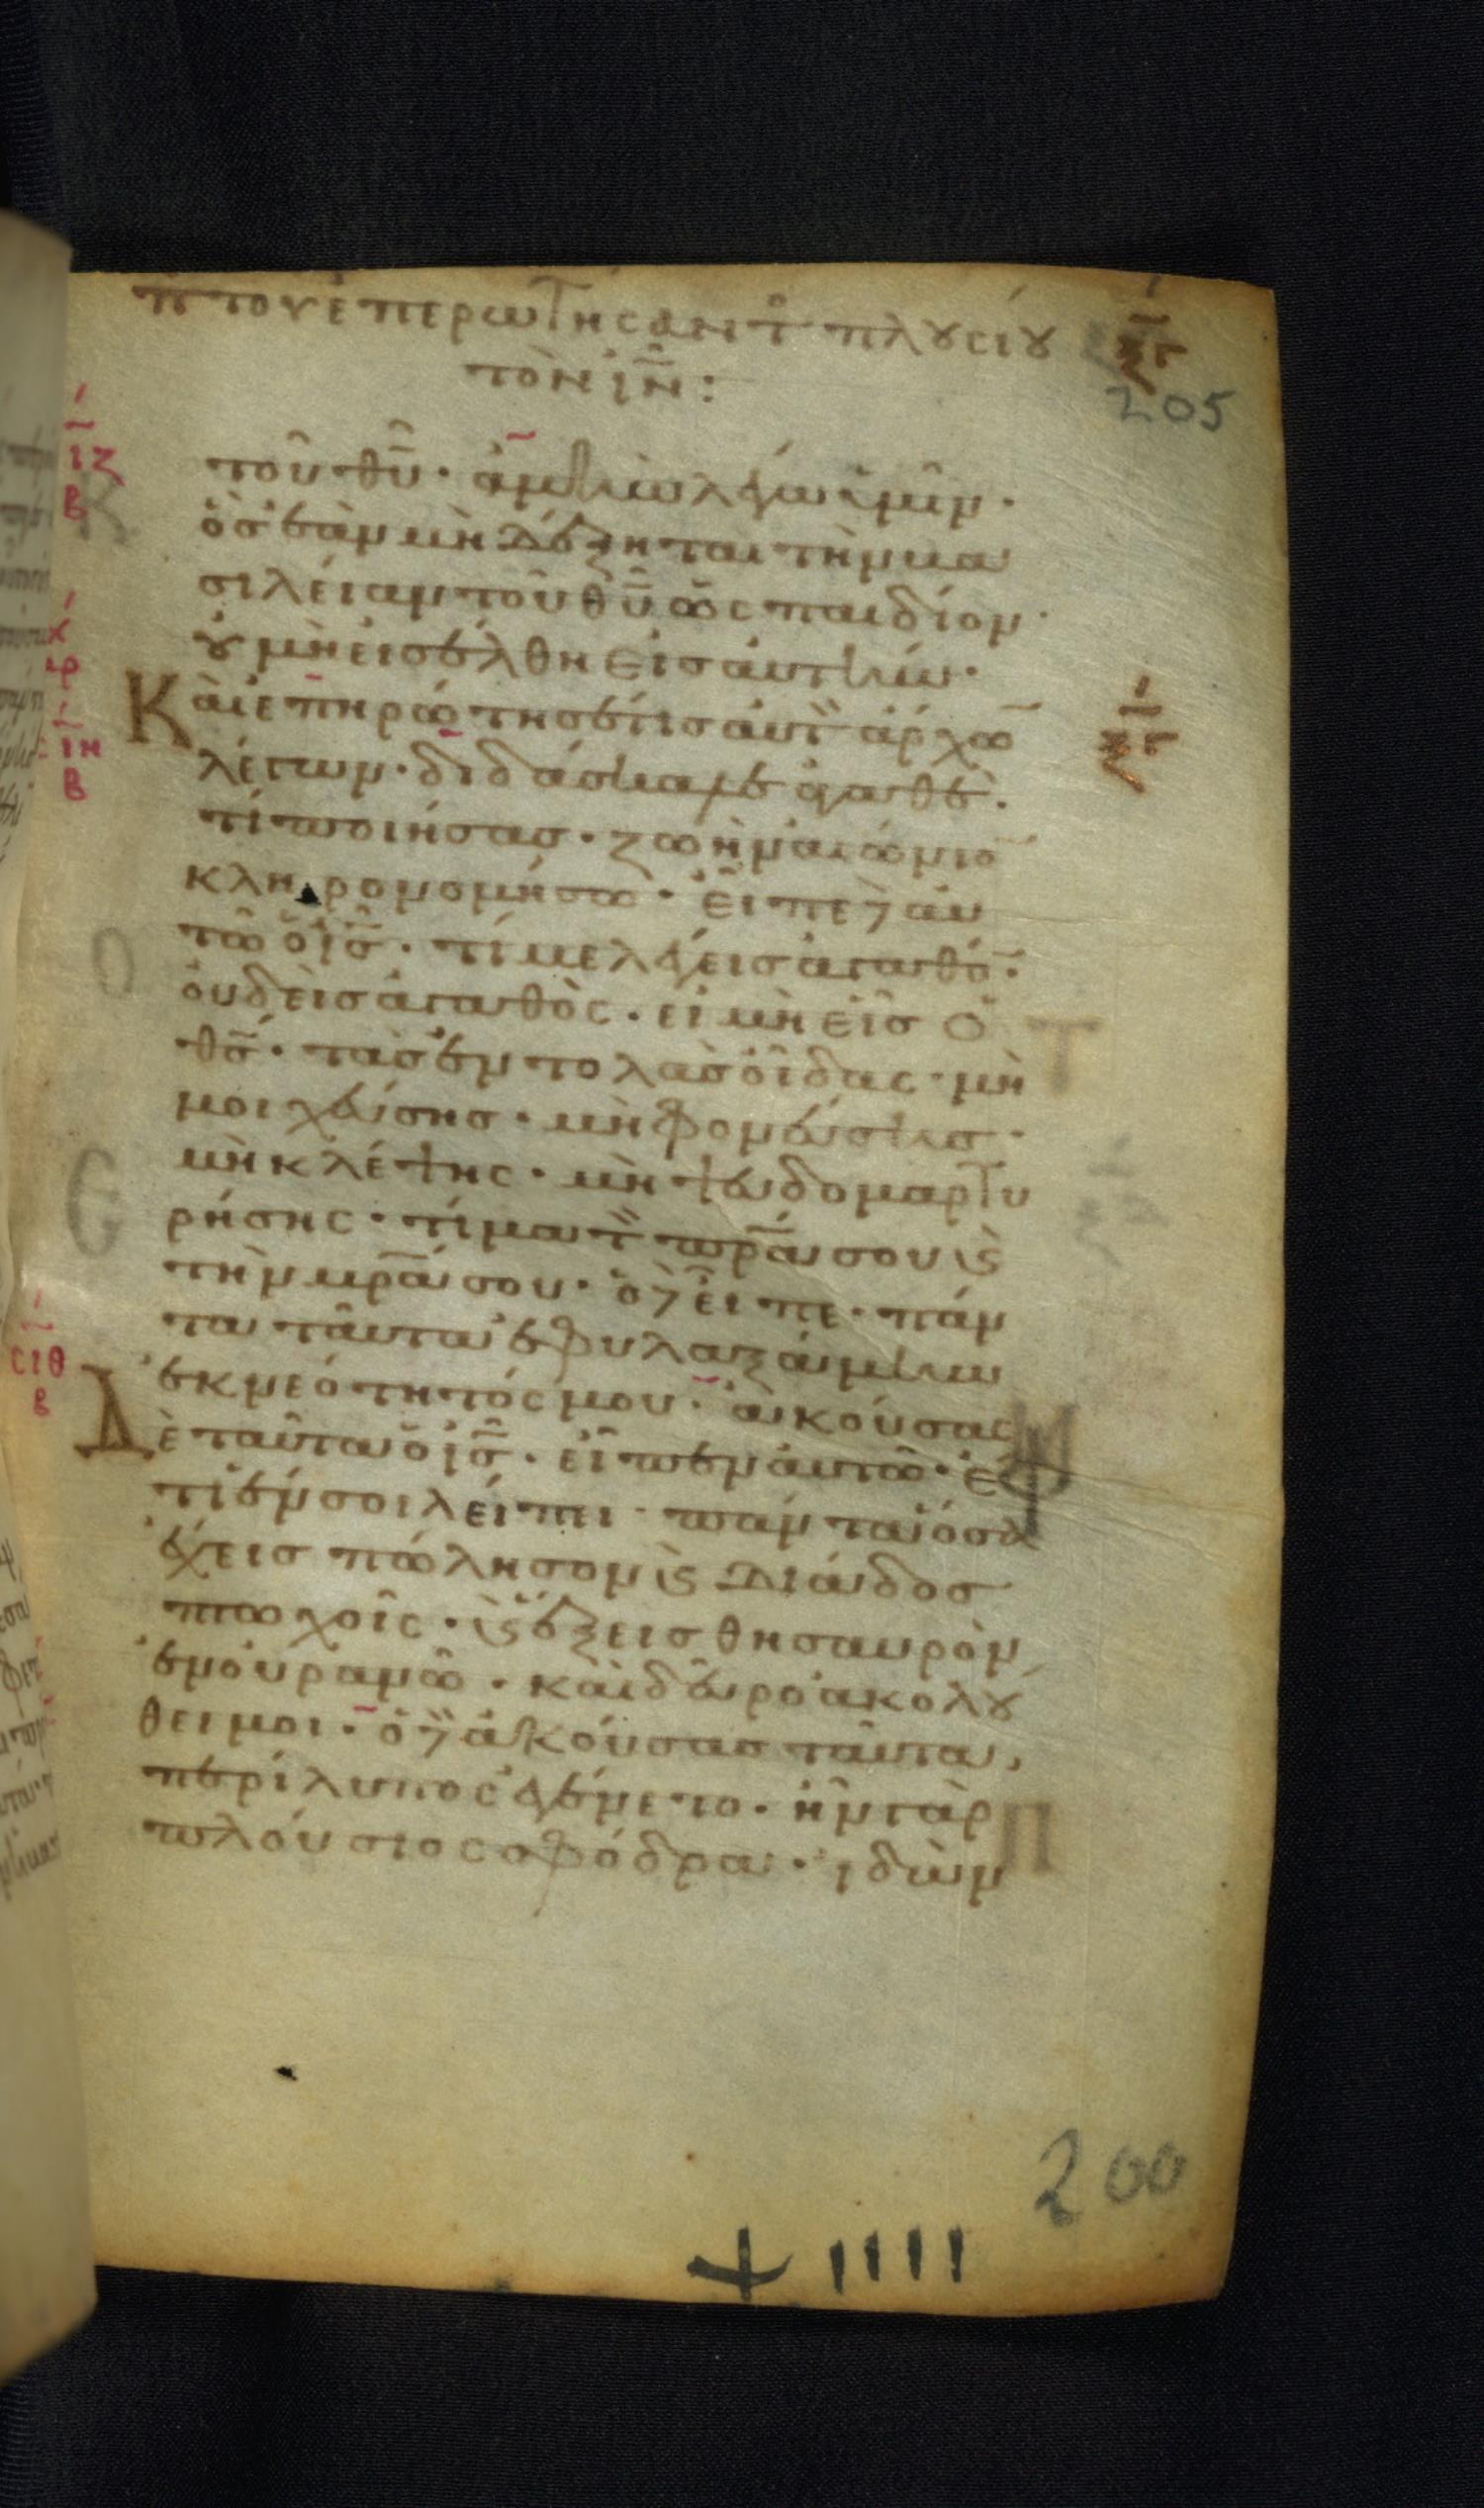 πϵ τοῦ ἐπερωτήσαντ πλουσίου
τὸν ιν:
ξγ
205
ιζ
β
τοῦ θυ· ἀμὴν λέγω ὑμῖν·
ὃσ ἐὰν μὴ δέξηται τὴν βα
σιλείαν τοῦ θυ ὡς παιδίον·
ου μὴ εἰσέλθη εἰσ αὐτήν·
Καὶ ἐπηρώτησέ τισ αὐτ ἄρχω
λέγων· διδάσκαλε ἀγαθὲ·
σιη
β
ξγ
τί ποιήσασ· ζωὴν αἰώνιο
κληρονομήσω· εἶπε δ αυ
τῶ ὁ ισ· τί με λέγεισ ἀγαθό·
οὐδεὶσ ἀγαθὸς· εἰ μὴ εἷσ ὁ
θσ· τὰσ ἐντολὰσ οἶδας· μὴ
μοιχεύσησ· μὴ φονεύσησ·
μὴ κλέψης· μὴ ψευδομαρτυ
ρήσης· τίμα τ πρα σου ϗ
τὴν μρα σου· ὁ δ εἶπε· πάν
τα ταῦτα ἐφυλαξάμην
ἐκ νεότητός μου· ἀκούσας
σιθ
β
Δὲ ταῦτα ὁ ισ· εἶπεν αὐτῶ· ἔ
τι ἕν σοι λείπει· πάντα ὅσα
ἔχεισ πώλησον ϗ διάδοσ
πτωχοῖς· ϗ ἕξεισ θησαυρὸν
ἐν οὐρανῶ· καὶ δεῦρο ἀκολού
θει μοι· ὁ δ ἀκούσασ ταῦτα,
περίλυπος ἐγένετο· ἦν γὰρ
πλούσιος σφόδρα· ἰδὼν
200